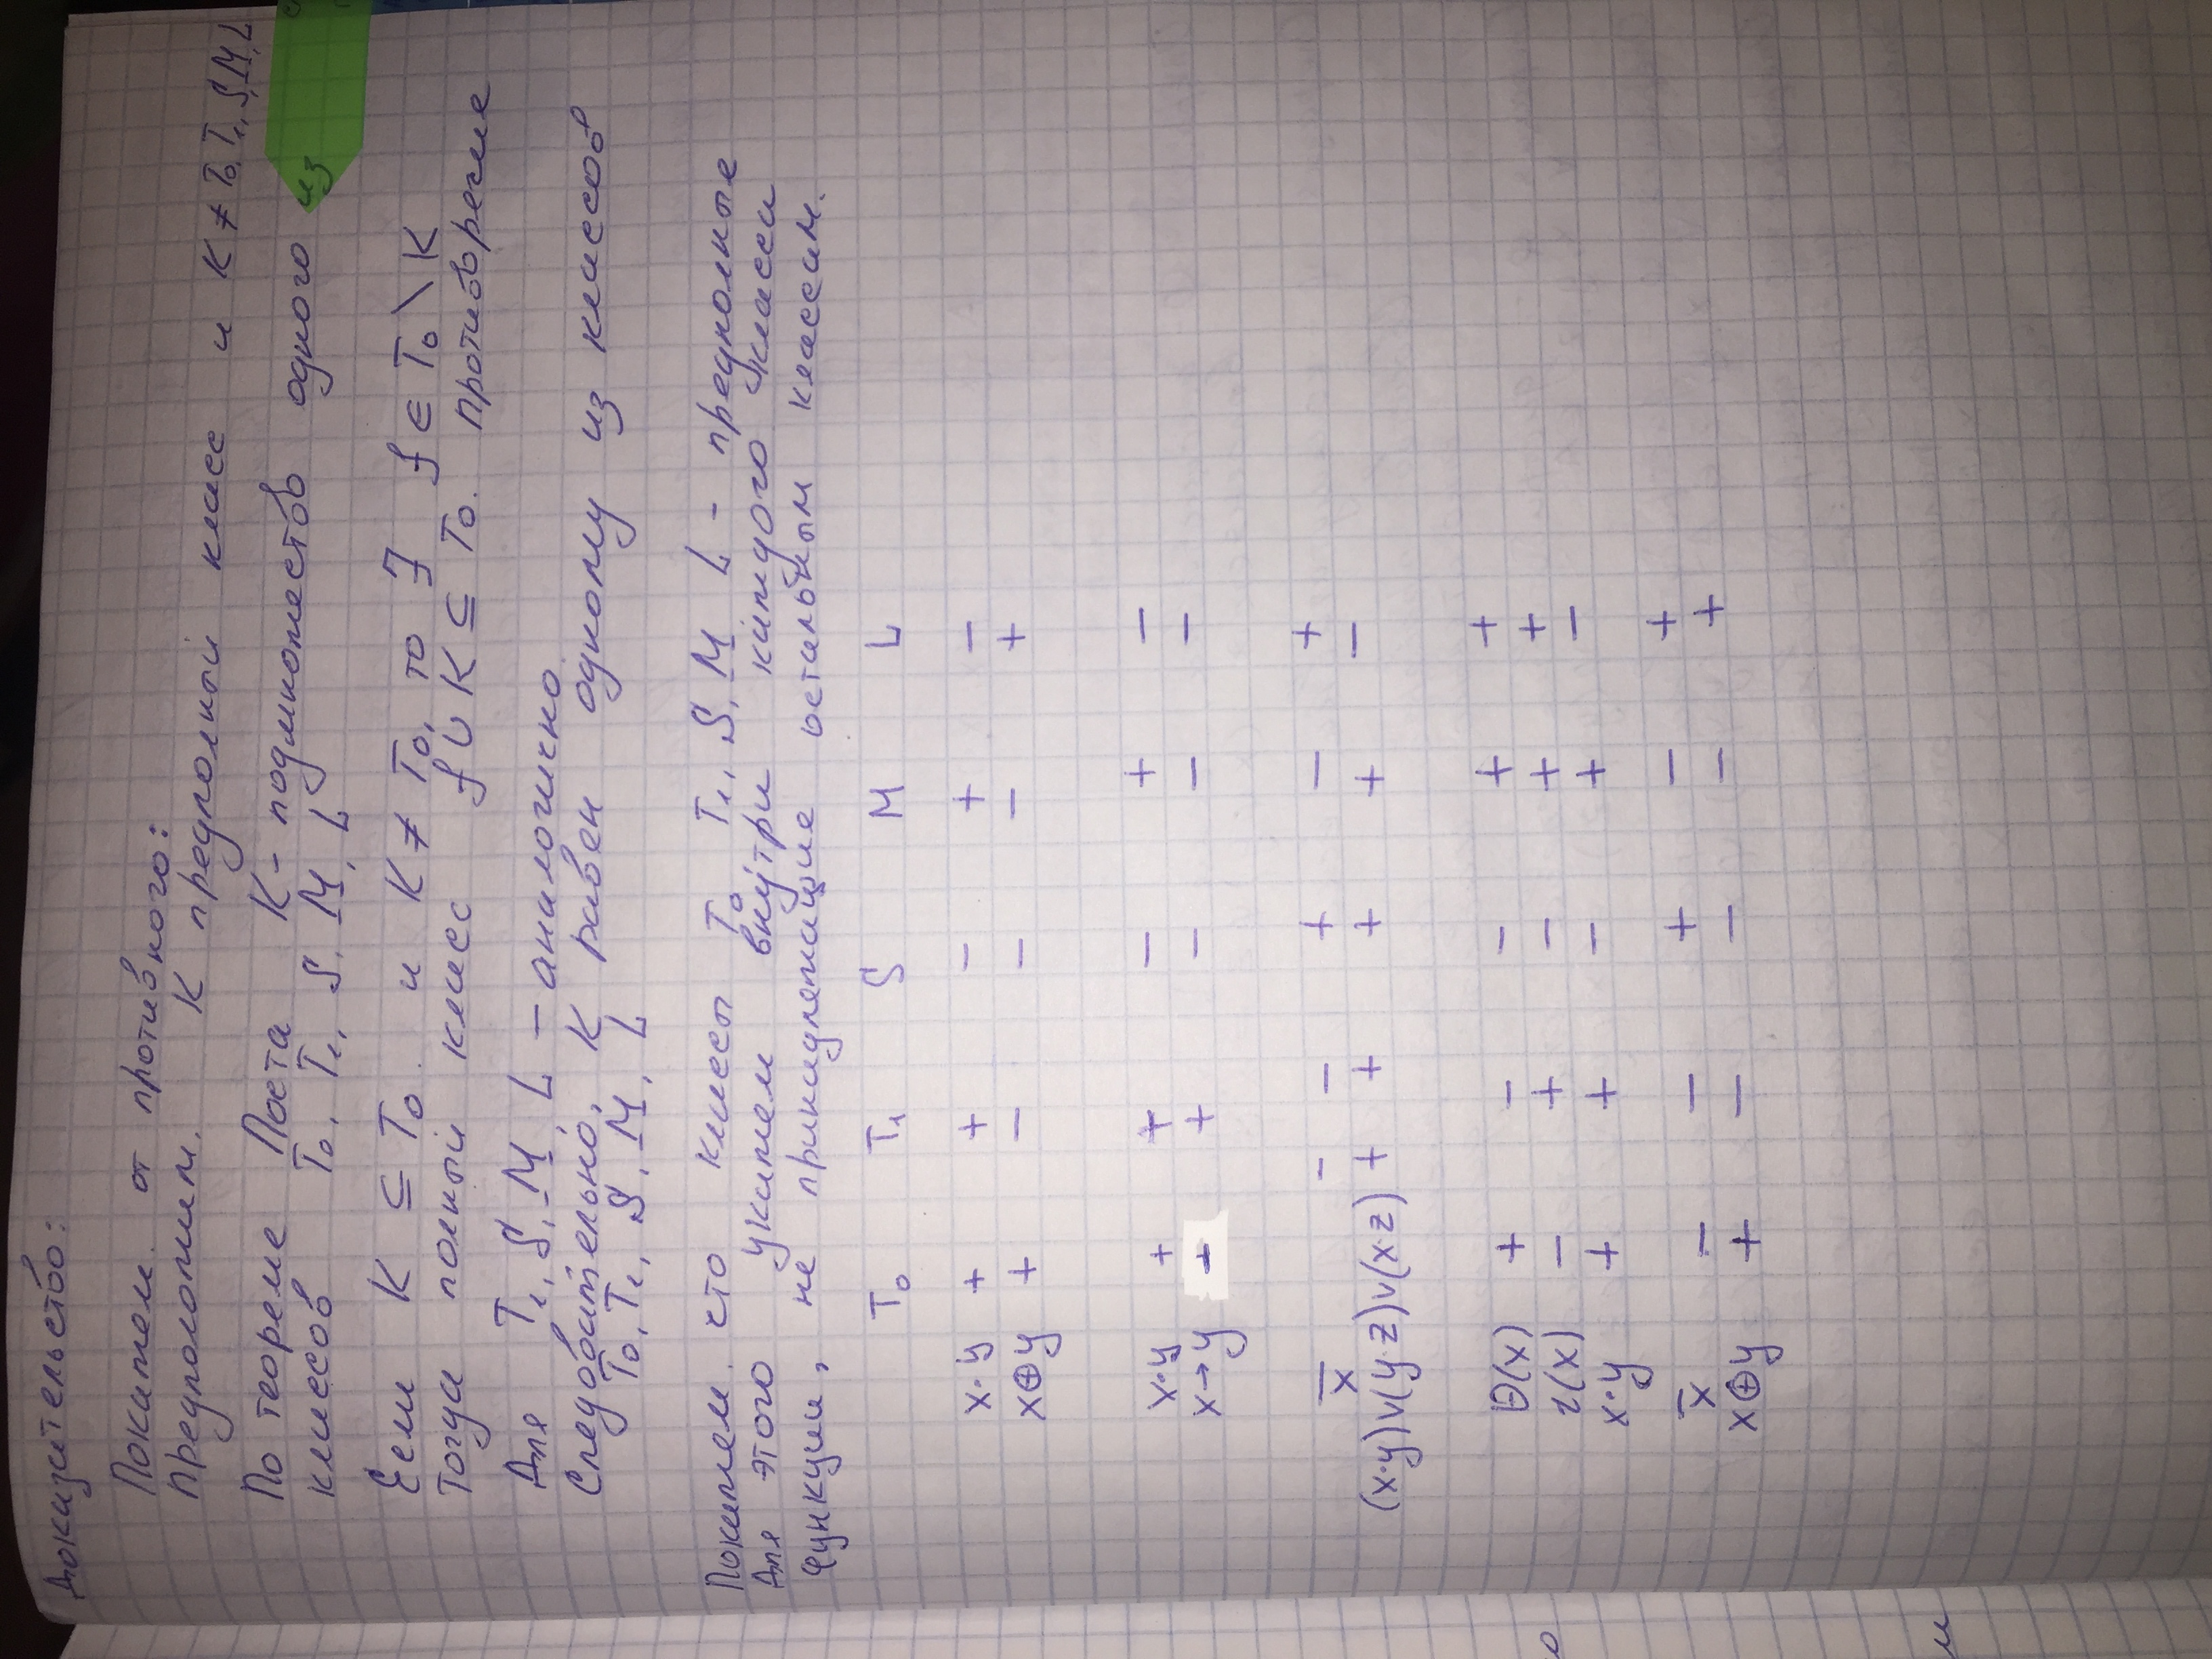 Доказательство:
Покажем от противного:
Предположим. K предполный класс и K ≠ T₀, T₁, S, M, L
По теореме Поста K - подмножество одного из
классов T₀, T₁, S, M, L
Если K ⊆ T₀ и K ≠ T₀, то ∃ f ∈ T₀ \ K
тогда полный класс f ∪ K ⊆ T₀. противоречие
Для T₁, S, M, L - аналогично.
Следовательно, K равен одному из классов
T₀, T₁, S, M, L
Покажем, что классы T₀ T₁, S, M L - предполные
Для этого укажем внутри каждого класса
функции, не принадлежащие остальным классам.
T₀ T₁ S M L
x·y + + − + −
x⊕y + − − − +
x·y + + − + −
x→y − + − − −
x̄ − − + − +
(x·y)∨(y·z)∨(x·z) + + + + −
0(x) + − − + +
1(x) − + − + +
x·y + + − + −
x̄ − − + − +
x⊕y + − − − +